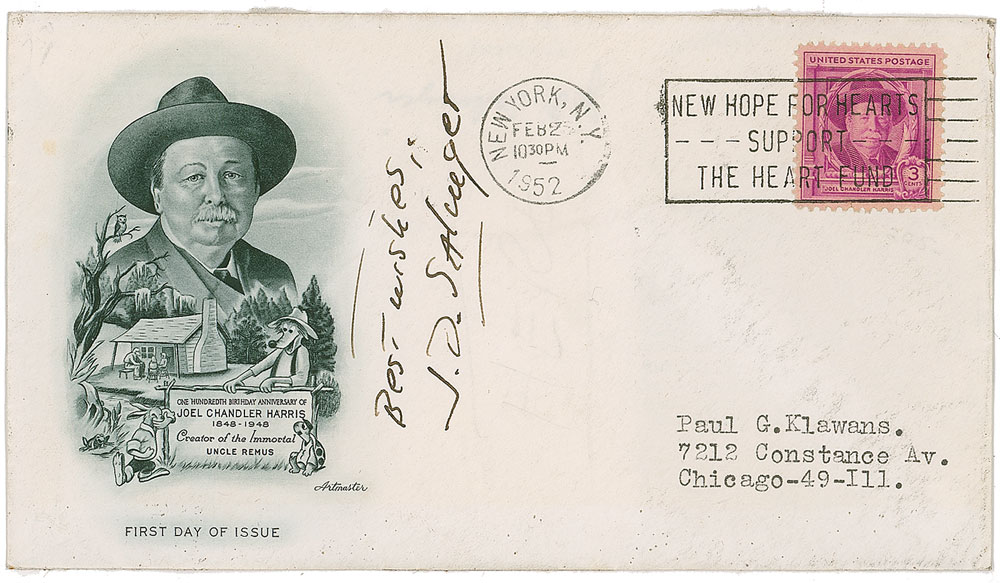 ONE HUNDREDTH BIRTHDAY ANNIVERSARY OF
JOEL CHANDLER HARRIS
1848-1948
Creator of the Immortal
UNCLE REMUS
Artmaster
FIRST DAY OF ISSUE
Best wishes,
J. D. Salinger
NEW YORK, N.Y.
FEB 2
1030 PM
1952
NEW HOPE FOR HEARTS
---SUPPORT---
THE HEART FUND
UNITED STATES POSTAGE
JOEL CHANDLER HARRIS
3
CENTS
Paul G.Klawans.
7212 Constance Av.
Chicago-49-Ill.